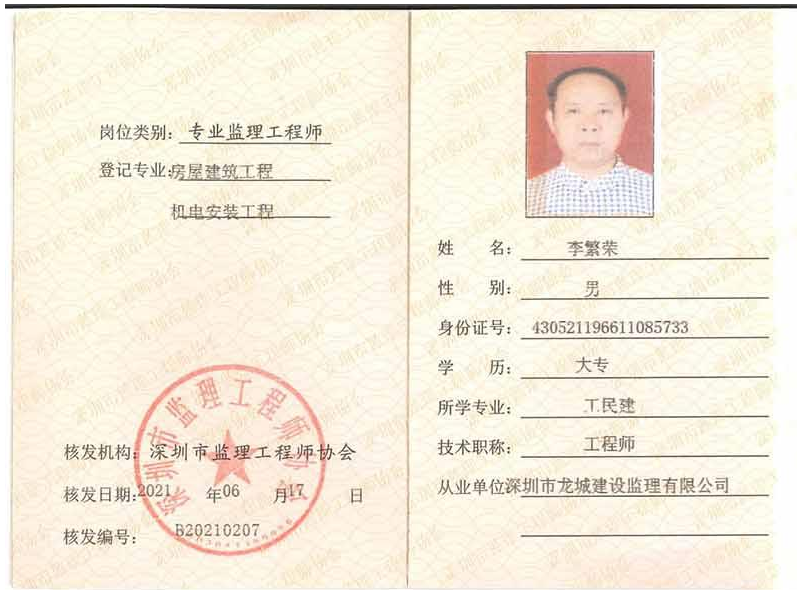 岗位类别：专业监理工程师
登记专业：房屋建筑工程
机电安装工程
深圳市监理工程师协会
核发机构：深圳市监理工程师协会
核发日期：2021 年06 月17 日
核发编号：B20210207
姓 名：李繁荣
性 别：男
身份证号：430521196611085733
学 历：大专
所学专业：工民建
技术职称：工程师
从业单位深圳市龙城建设监理有限公司